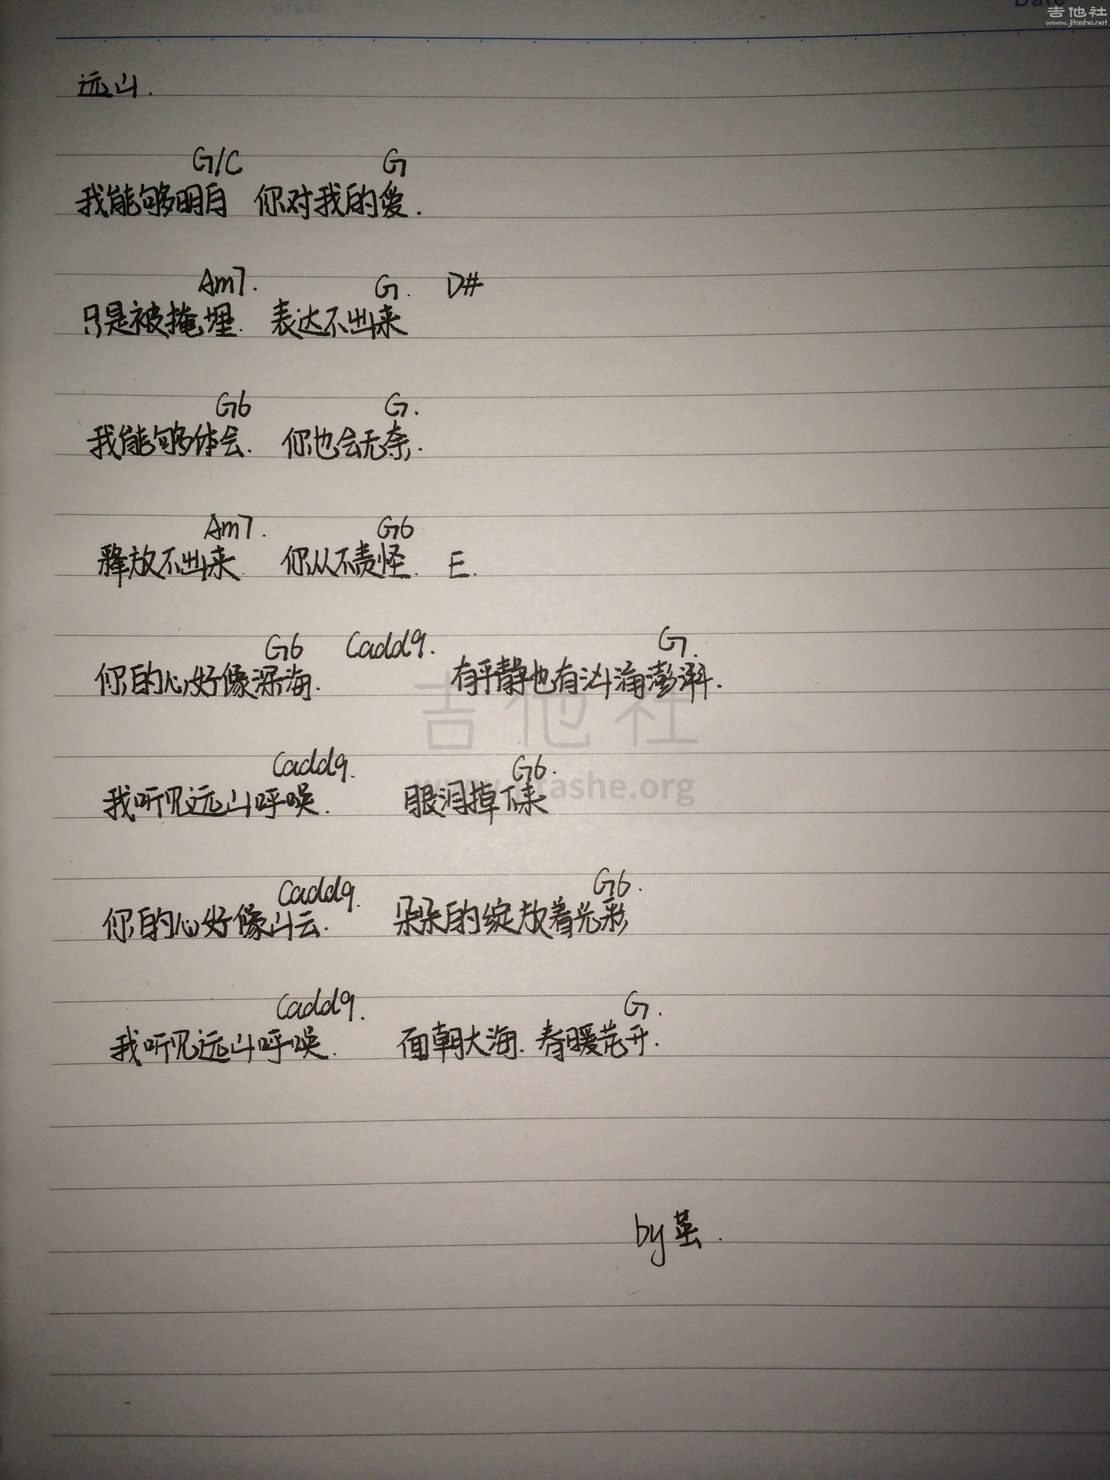 Date
吉他社
www.jitashe.net
远山.
G/C G
我能够明白 你对我的爱.
Am7. G. D#
只是被掩埋. 表达不出来
G6 G.
我能够体会. 你也会无奈.
Am7. G6
释放不出来 你从不责怪. E.
G6 Cadd9. G.
你的心好像深海. 有平静也有汹涌澎湃.
吉他社
www.jitashe.org
Cadd9. G6.
我听见远山呼唤. 眼泪掉下来
Cadd9. G6.
你的心好像山云. 朵朵的绽放着光彩
Cadd9. G.
我听见远山呼唤. 面朝大海. 春暖花开.
by 茧.